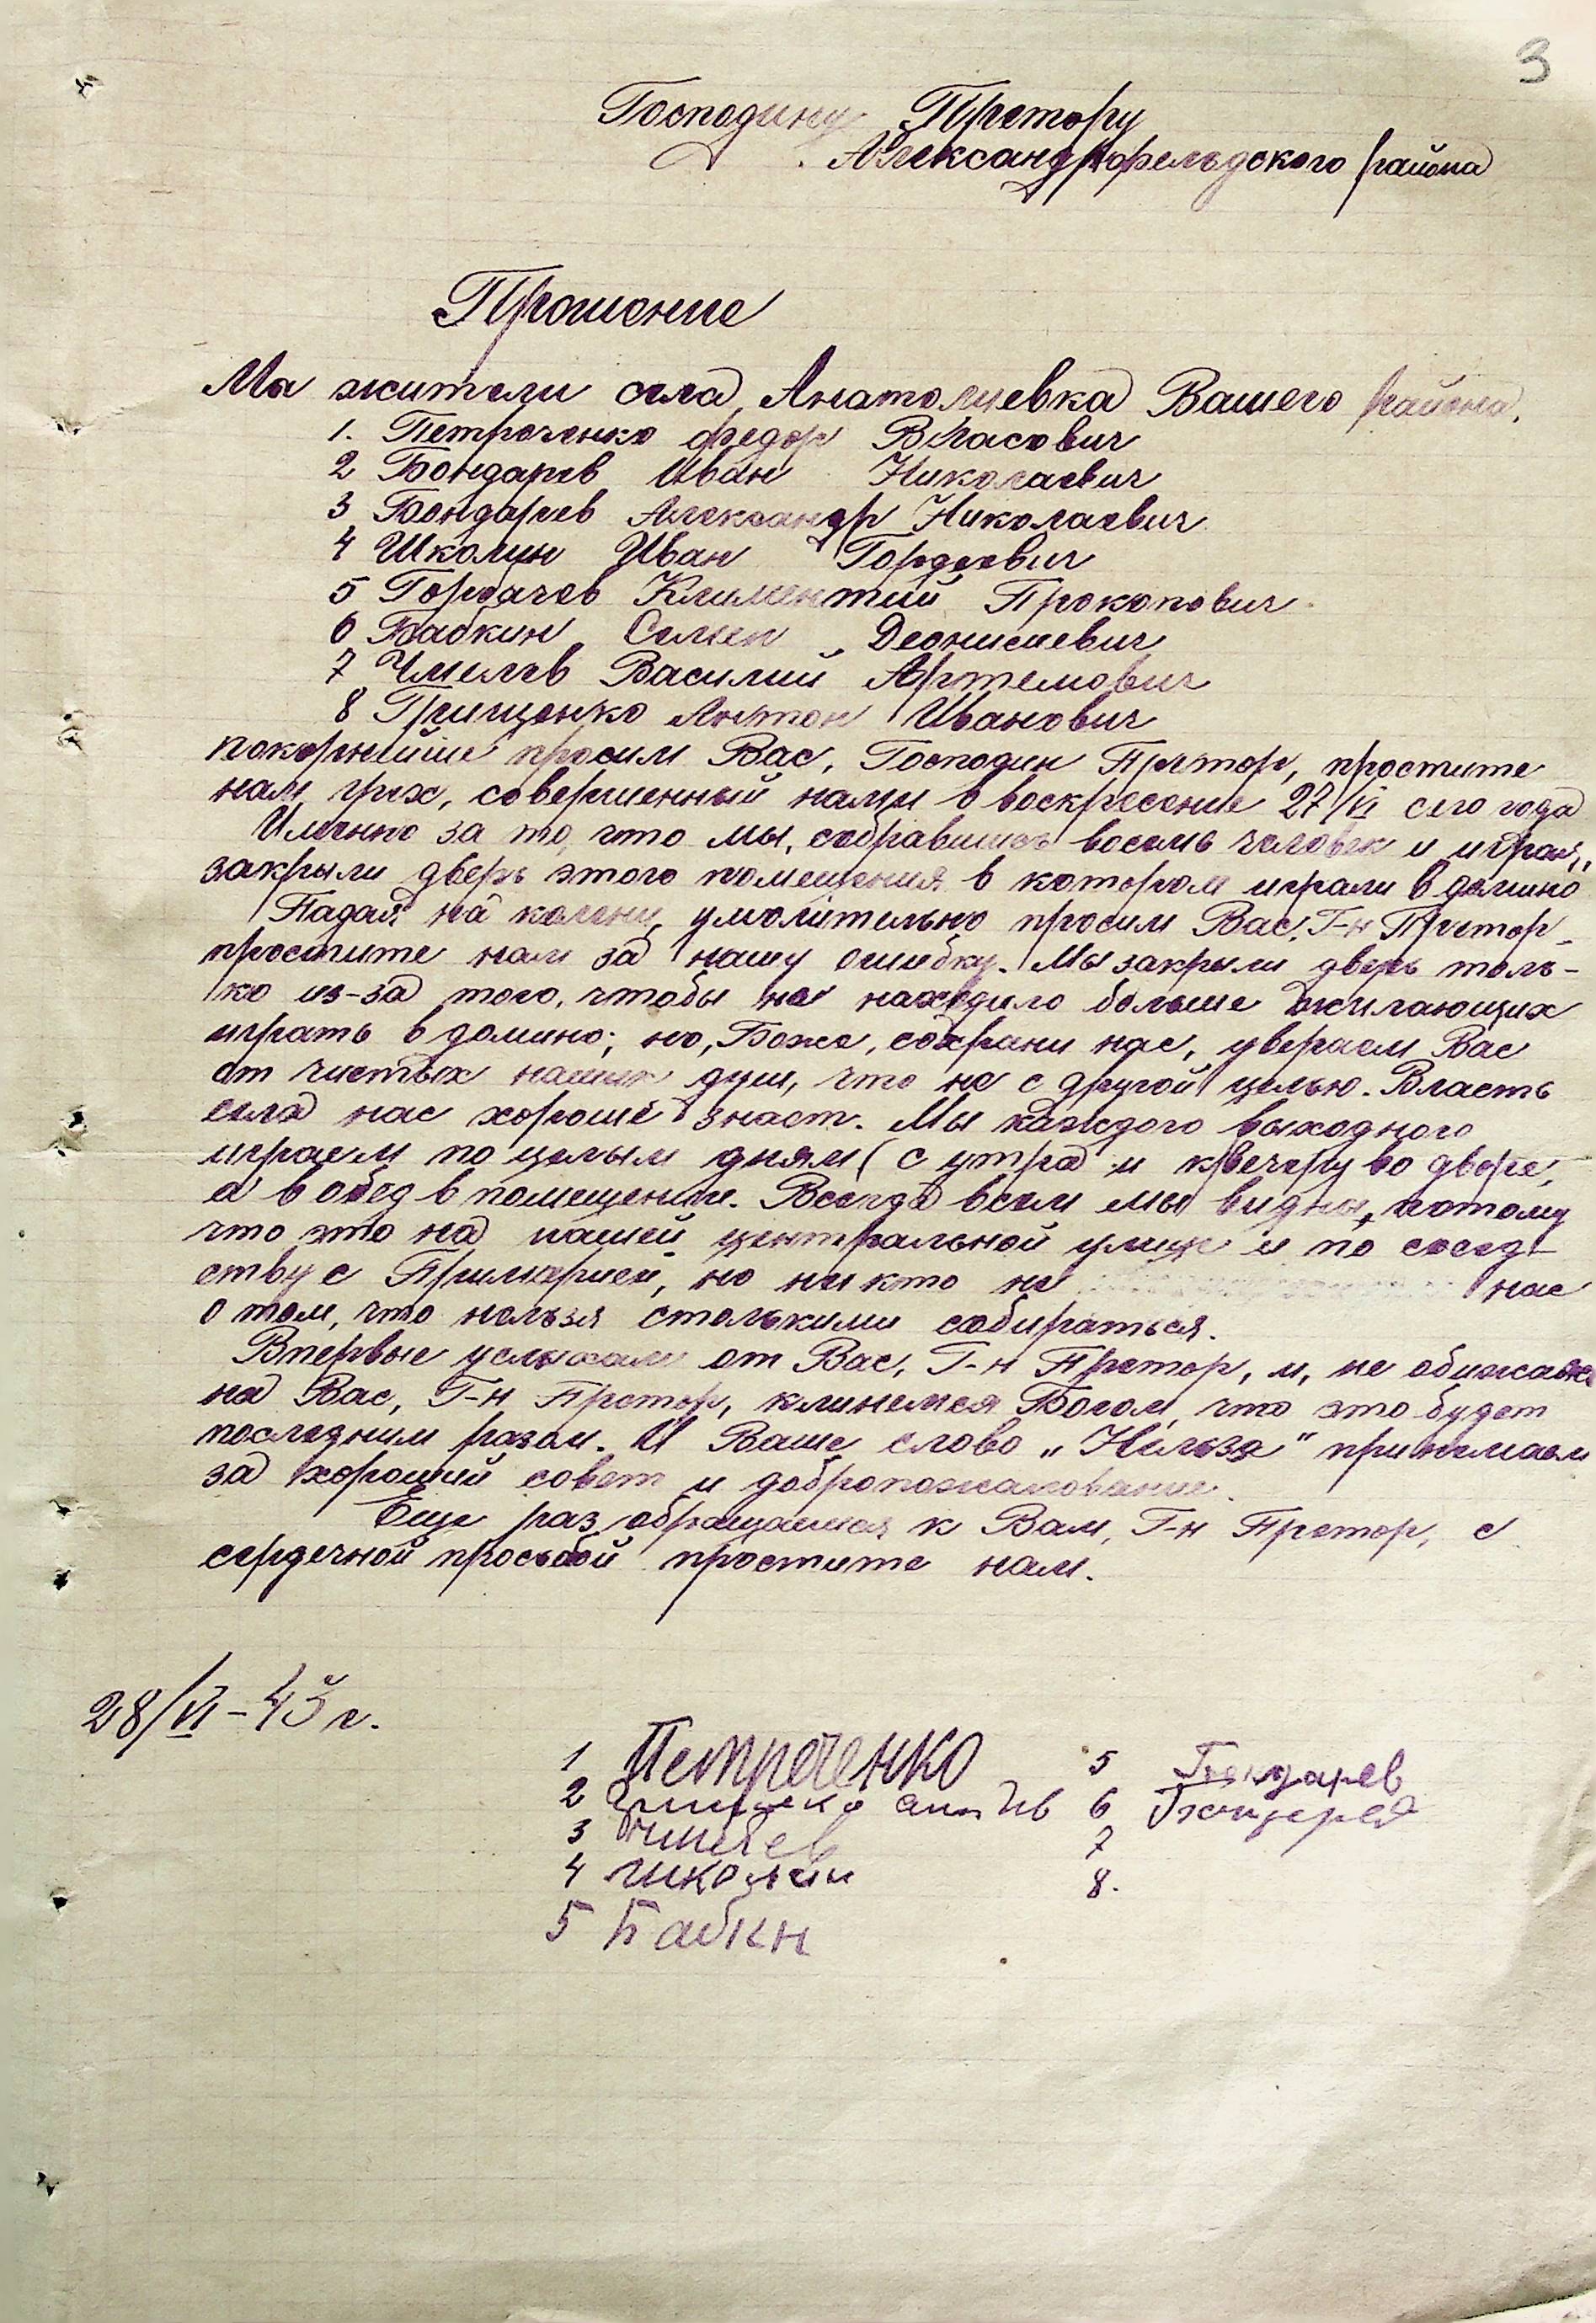 3
Господину Претору
Александрфельдского района
Прошение
Мы жители села Анатолиевка Вашего района.
1. Петреченко Федор Власович
2 Бондарев Иван Николаевич
3 Бондарев Александр Николаевич
4 Школин Иван Гордеевич
5 Горбачев Климентий Прокопович
6 Бабкин Семен Деонисиевич
7 Чмелев Василий Артемович
8 Грищенко Антон Иванович
покорнейше просим Вас, Господин Претор, простите
нам грех, совершенный нами в воскресение 27/VI сего года
Именно за то, что мы, собравшись восемь человек и играя,
закрыли дверь этого помещения в котором играли в домино
Падая на колени, умолительно просим Вас, Г-н Претор
простите нам за нашу ошибку. Мы закрыли дверь толь-
ко из-за того, чтобы не находило больше желающих
играть в домино; но, Боже, сохрани нас, уверяем Вас
от чистых наших душ, что не с другой целью. Власть
села нас хорошо знает. Мы каждого выходного
играем по целым дням (с утра и к вечеру во дворе,
а в обед в помещении. Всегда всем мы видны, потому
что это на нашей центральной улице и по сосед-
ству с Примэрией, но никто не нас
о том, что нельзя столькими собираться.
Впервые услыхали от Вас, Г-н Претор, и, не обижаясь
на Вас, Г-н Претор, клянемся Богом, что это будет
последним разом. И Ваше слово „Нельзя" принимаем
за хороший совет и добропожелование.
Еще раз обращаемся к Вам, Г-н Претор, с
сердечной просьбой простите нам.
28/VI-43 г.
1 Петреченко
2 Грищенко
3 Чмелев
4 Школин
5 Бабкн
5 Бондарев
6 Бондарев
7
8.